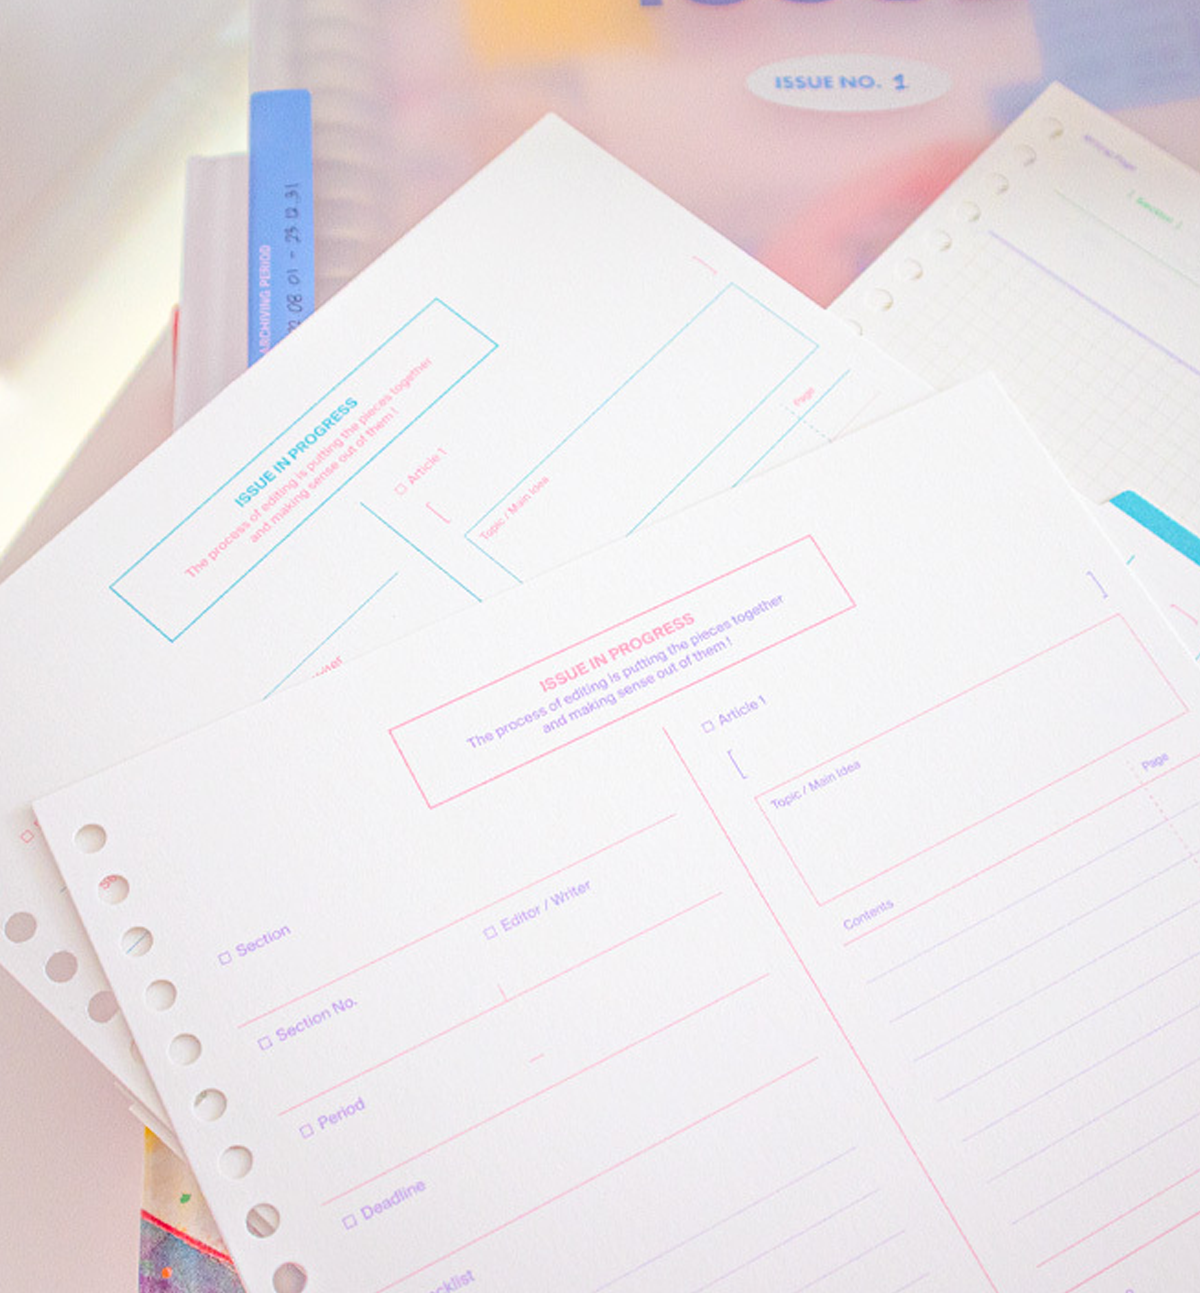 ISSUE NO. 1
ARCHIVING PERIOD
08.01 - 23.12.31
[ Section ]
ISSUE IN PROGRESS
The process of editing is putting the pieces together
and making sense out of them !
Article 1
[ ]
Topic / Main Idea
Page
ISSUE IN PROGRESS
The process of editing is putting the pieces together
and making sense out of them !
Article 1
[ ]
Topic / Main Idea
Page
Contents
Section
Editor / Writer
Section No.
Period
Deadline